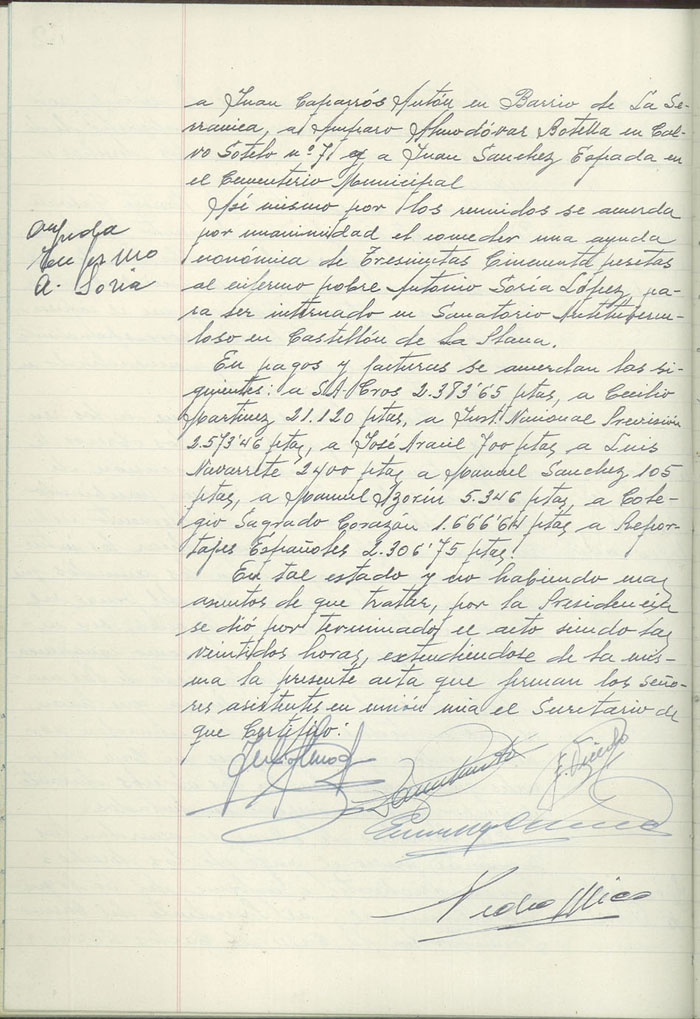 a Juan Caparrós Antón en Barrio de La Se-
rranica, a Amparo Almodóvar Botella en Cal-
vo Sotelo nº 71 y a Juan Sanchez Espada en
el Cementerio Municipal
Así mismo por los reunidos se acuerda
por unanimidad el conceder una ayuda
económica de Trescientas Cincuenta pesetas
al enfermo pobre Antonio Soria López, pa-
ra ser internado en Sanatorio Antitubercu-
loso en Castellón de La Plana.
Ayuda
Enfermo
A. Soria
En pagos y facturas se acuerdan los si-
guientes: a S.A. Cros 2.373'65 ptas, a Cecilio
Martinez 21.120 ptas, a Inst. Nacional Previsión
2.573'46 ptas, a José Aracil 700 ptas a Luis
Navarrete 2400 ptas a Manuel Sanchez 105
ptas, a Manuel Azorín 5.346 ptas, a Cole-
gio Sagrado Corazón 1.666'64 ptas a Repor-
tajes Españoles 2.306'75 ptas.
En tal estado y no habiendo mas
asuntos de que tratar, por la Presidencia
se dió por terminado el acto siendo las
veintidos horas, extendiendose de la mis-
ma la presente acta que firman los seño-
res asistentes en unión mia el Secretario de
que Certifico:
Pedro Mico